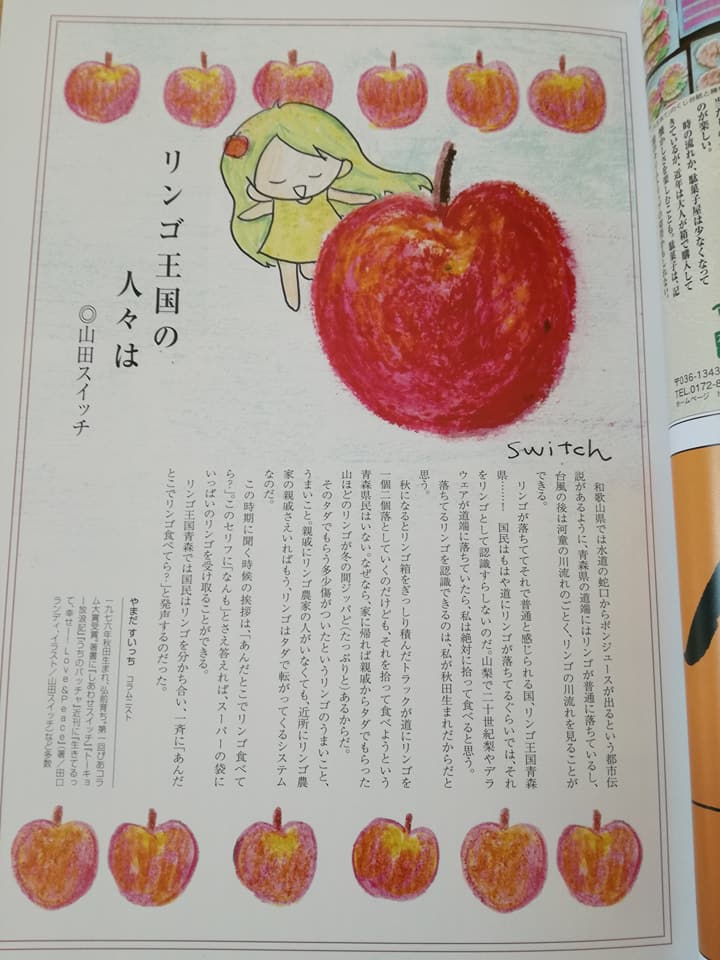 リンゴ王国の
人々は
◎山田スイッチ
switch
和歌山県では水道の蛇口からポンジュースが出るという都市伝
説があるように、青森県の道端にはリンゴが普通に落ちているし、
台風の後は河童の川流れのごとく、リンゴの川流れを見ることが
できる。
リンゴが落ちててそれで普通と感じられる国、リンゴ王国青森
県……！　国民はもはや道にリンゴが落ちてるぐらいでは、それ
をリンゴとして認識すらしないのだ。山梨で二十世紀梨やデラ
ウェアが道端に落ちていたら、私は絶対に拾って食べると思う。
落ちてるリンゴを認識できるのは、私が秋田生まれだからだと
思う。
秋になるとリンゴ箱をぎっしり積んだトラックが道にリンゴを
一個二個落としていくのだけども、それを拾って食べようという
青森県民はいない。なぜなら、家に帰れば親戚からタダでもらった
山ほどのリンゴが冬の間ジッパど（たっぷりと）あるからだ。
そのタダでもらう多少傷がついたというリンゴのうまいこと、
うまいこと。親戚にリンゴ農家の人がいなくても、近所にリンゴ農
家の親戚さえいればもう、リンゴはタダで転がってくるシステム
なのだ。
この時期に聞く時候の挨拶は、「あんだとこでリンゴ食べて
ら？」。このセリフに「なんも」とさえ答えれば、スーパーの袋に
いっぱいのリンゴを受け取ることができる。
リンゴ王国青森では国民はリンゴを分かち合い、一斉に「あんだ
とこでリンゴ食べてら？」と発声するのだった。
やまだ すいっち　コラムニスト
一九七六年秋田生まれ、弘前育ち。第一回ぴあコラ
ム大賞受賞。著書に『しあわせスイッチ』『トーキョ
ー放浪記』『うちのバッチャ』近刊に『生きてるっ
て、幸せ―！Love&Peace』（著／田口
ランディ、イラスト／山田スイッチ）など多数
のが楽しい。
時の流れか、駄菓子屋は少なくなって
きているが、近年は大人が箱で購入して
懐かしさを楽しむことも。駄菓子は、記
〒036-1343
TEL.0172-8
ホームページ